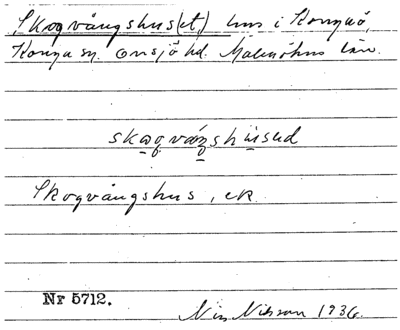 Skogvångshus(et) hus i Konga,
Konga sn. Onsjö hd. Malmöhus län.
skogvångshused
Skogvångshus, ek
Nr 5712.
Nils Nilsson 1936.